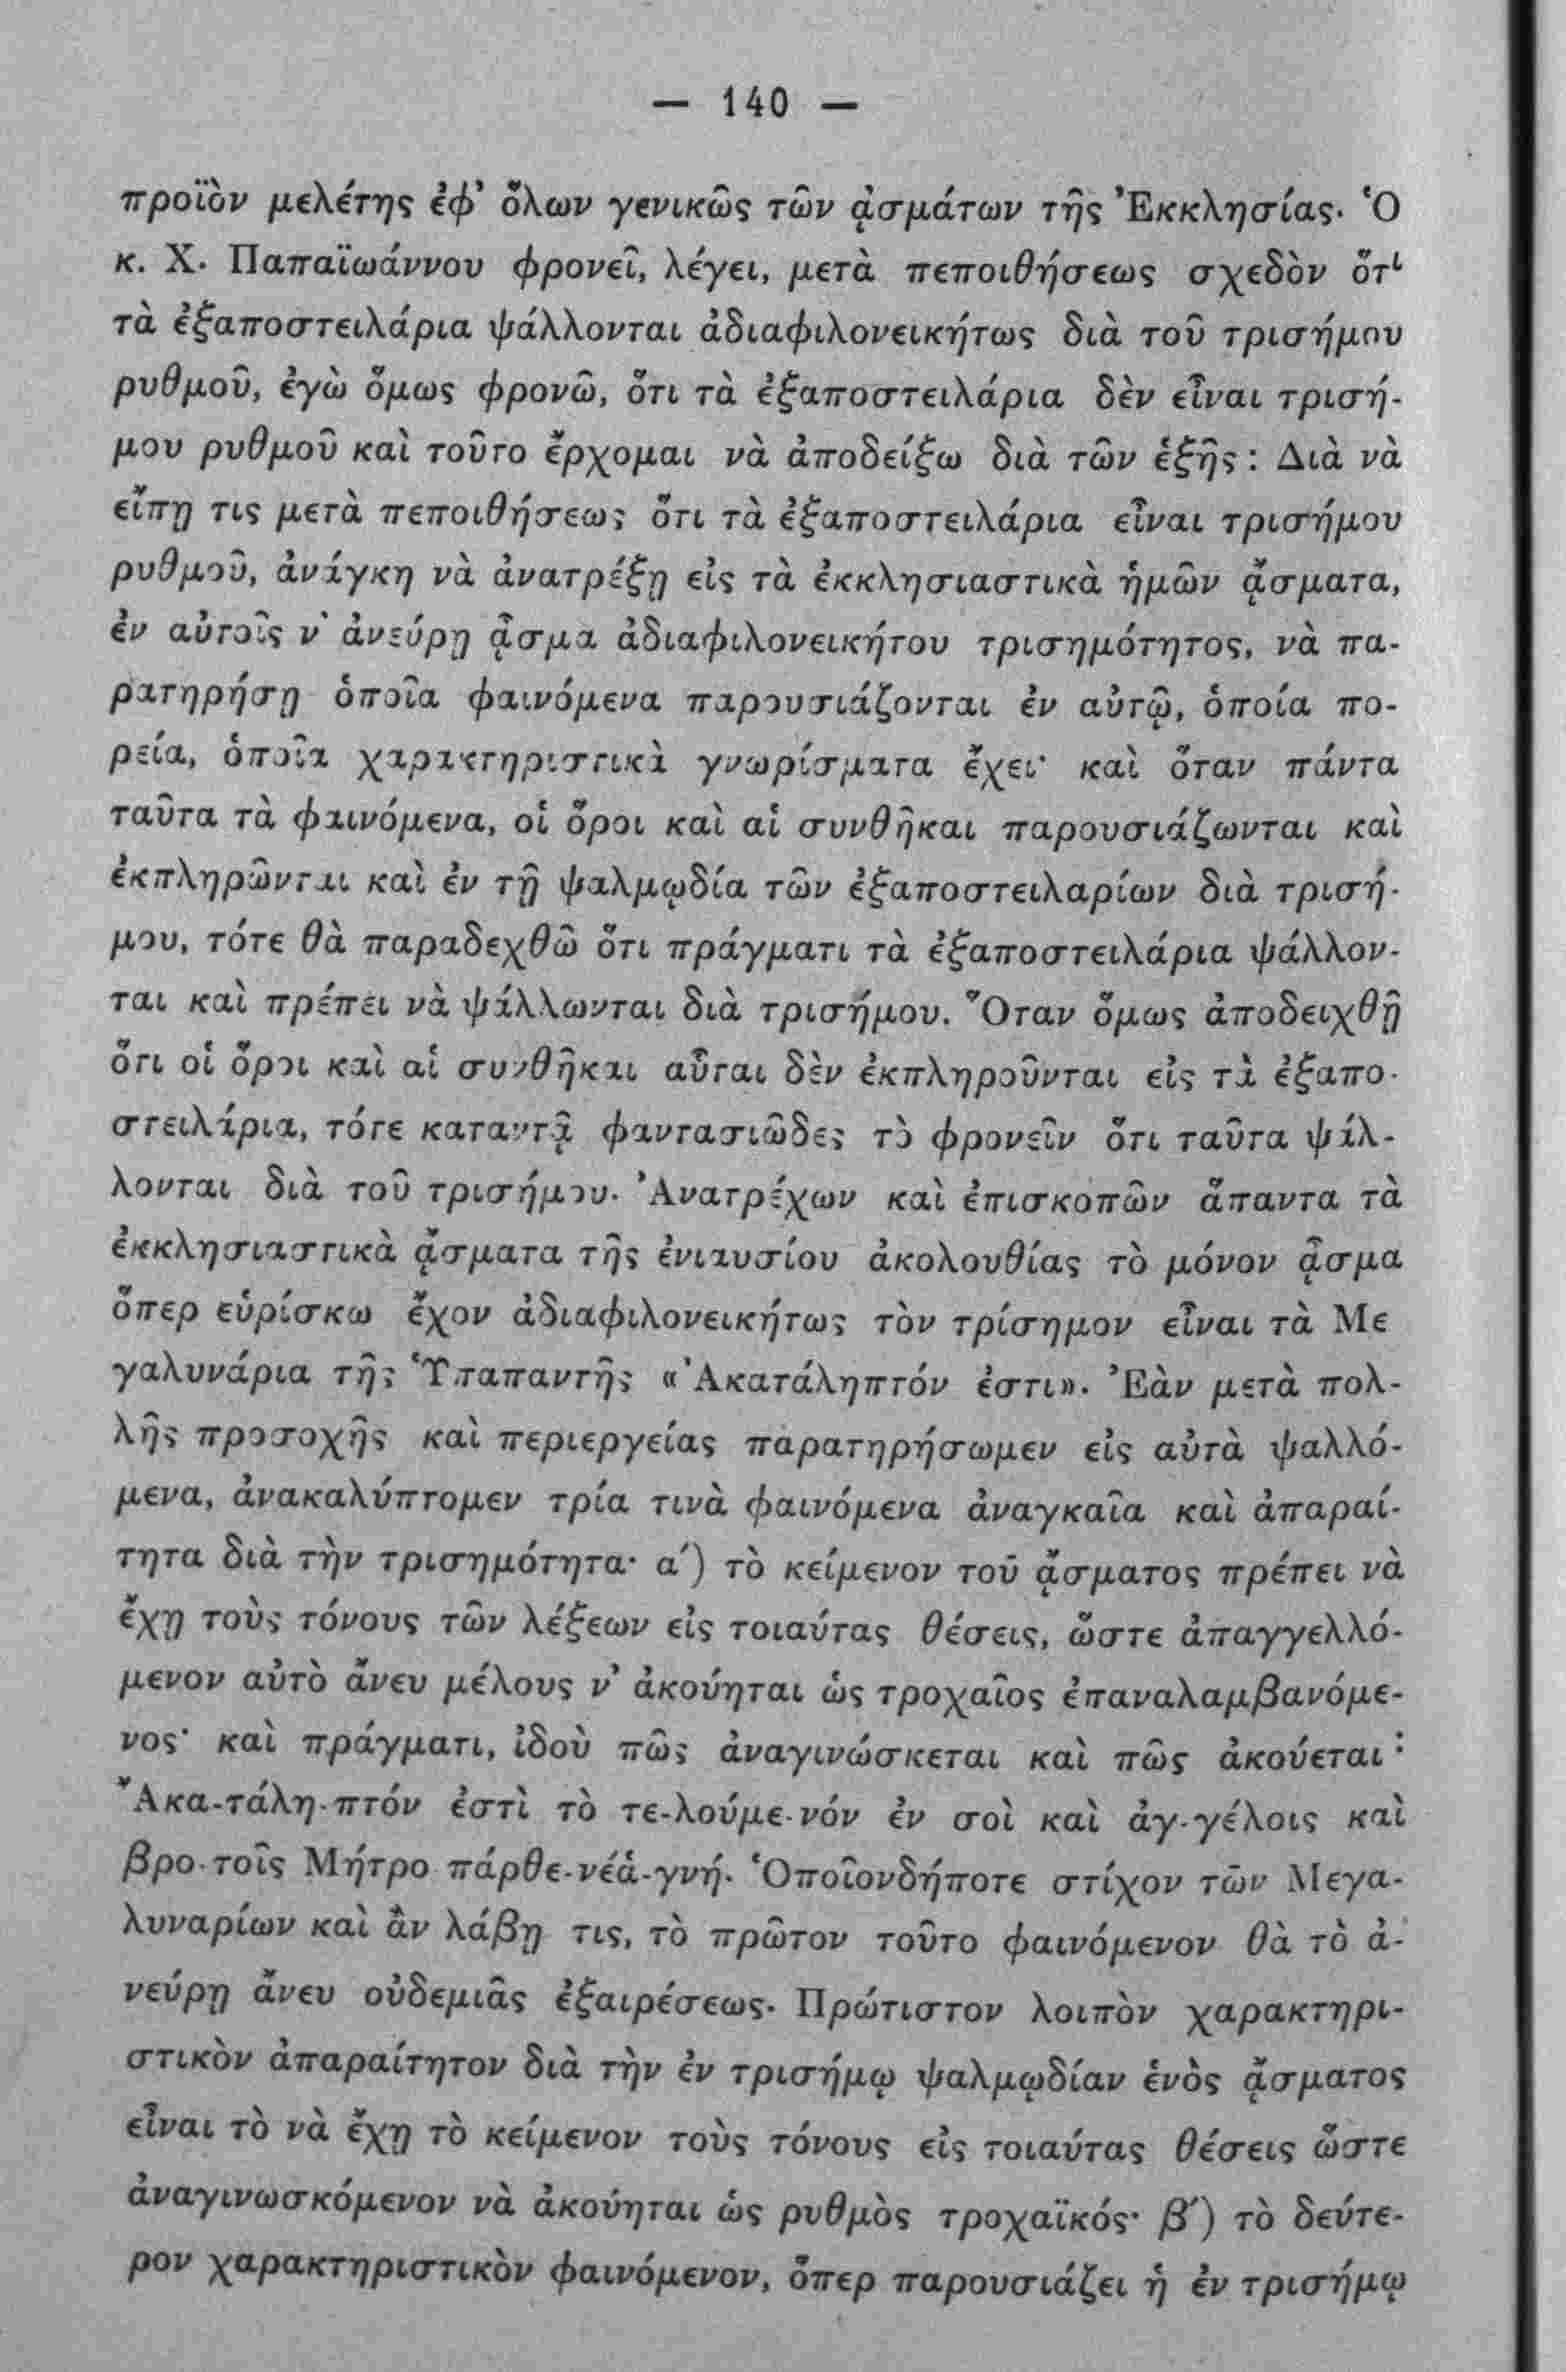 — 140 —
προϊὸν μελέτης ἐφ’ ὅλων γενικῶς τῶν ᾀσμάτων τῆς Ἐκκλησίας. Ὁ
κ. Χ. Παπαϊωάννου φρονεῖ, λέγει, μετὰ πεποιθήσεως σχεδὸν ὅτι
τὰ ἐξαποστειλάρια ψάλλονται ἀδιαφιλονεικήτως διὰ τοῦ τρισήμου
ρυθμοῦ, ἐγὼ ὅμως φρονῶ, ὅτι τὰ ἐξαποστειλάρια δὲν εἶναι τρισή-
μου ρυθμοῦ καὶ τοῦτο ἔρχομαι νὰ ἀποδείξω διὰ τῶν ἑξῆς: Διὰ νὰ
εἴπῃ τις μετὰ πεποιθήσεως ὅτι τὰ ἐξαποστειλάρια εἶναι τρισήμου
ρυθμοῦ, ἀνάγκη νὰ ἀνατρέξῃ εἰς τὰ ἐκκλησιαστικὰ ἡμῶν ᾄσματα,
ἐν αὐτοῖς ν’ ἀνεύρῃ ᾆσμα ἀδιαφιλονεικήτου τρισημότητος, νὰ πα-
ρατηρήσῃ ὁποῖα φαινόμενα παρουσιάζονται ἐν αὐτῷ, ὁποία πο-
ρεία, ὁποῖα χαρακτηριστικὰ γνωρίσματα ἔχει· καὶ ὅταν πάντα
ταῦτα τὰ φαινόμενα, οἱ ὅροι καὶ αἱ συνθῆκαι παρουσιάζωνται καὶ
ἐκπληρῶνται καὶ ἐν τῇ ψαλμῳδίᾳ τῶν ἐξαποστειλαρίων διὰ τρισή-
μου, τότε θὰ παραδεχθῶ ὅτι πράγματι τὰ ἐξαποστειλάρια ψάλλον-
ται καὶ πρέπει νὰ ψάλλωνται διὰ τρισήμου. Ὅταν ὅμως ἀποδειχθῇ
ὅτι οἱ ὅροι καὶ αἱ συνθῆκαι αὗται δὲν ἐκπληροῦνται εἰς τὰ ἐξαπο-
στειλάρια, τότε καταντᾷ φαντασιῶδες τὸ φρονεῖν ὅτι ταῦτα ψάλ-
λονται διὰ τοῦ τρισήμου. Ἀνατρέχων καὶ ἐπισκοπῶν ἅπαντα τὰ
ἐκκλησιαστικὰ ᾄσματα τῆς ἐνιαυσίου ἀκολουθίας τὸ μόνον ᾆσμα
ὅπερ εὑρίσκω ἔχον ἀδιαφιλονεικήτως τὸν τρίσημον εἶναι τὰ Με
γαλυνάρια τῆς Ὑπαπαντῆς «Ἀκατάληπτόν ἐστι». Ἐὰν μετὰ πολ-
λῆς προσοχῆς καὶ περιεργείας παρατηρήσωμεν εἰς αὐτὰ ψαλλό-
μενα, ἀνακαλύπτομεν τρία τινὰ φαινόμενα ἀναγκαῖα καὶ ἀπαραί-
τητα διὰ τὴν τρισημότητα· α´) τὸ κείμενον τοῦ ᾄσματος πρέπει νὰ
ἔχῃ τοὺς τόνους τῶν λέξεων εἰς τοιαύτας θέσεις, ὥστε ἀπαγγελλό-
μενον αὐτὸ ἄνευ μέλους ν’ ἀκούηται ὡς τροχαῖος ἐπαναλαμβανόμε-
νος· καὶ πράγματι, ἰδοὺ πῶς ἀναγινώσκεται καὶ πῶς ἀκούεται:
Ἄκα-τάλη-πτόν ἐστὶ τὸ τε-λούμε-νόν ἐν σοὶ καὶ ἀγ-γέλοις καὶ
βρο-τοῖς Μήτρο πάρθε-νέἁ-γνή. Ὁποῖονδήποτε στίχον τῶν Μεγα-
λυναρίων καὶ ἂν λάβῃ τις, τὸ πρῶτον τοῦτο φαινόμενον θὰ τὸ ἀ-
νεύρῃ ἄνευ οὐδεμιᾶς ἐξαιρέσεως. Πρώτιστον λοιπὸν χαρακτηρι-
στικὸν ἀπαραίτητον διὰ τὴν ἐν τρισήμῳ ψαλμῳδίαν ἑνὸς ᾄσματος
εἶναι τὸ νὰ ἔχῃ τὸ κείμενον τοὺς τόνους εἰς τοιαύτας θέσεις ὥστε
ἀναγινωσκόμενον νὰ ἀκούηται ὡς ρυθμὸς τροχαϊκός· β´) τὸ δεύτε-
ρον χαρακτηριστικὸν φαινόμενον, ὅπερ παρουσιάζει ἡ ἐν τρισήμῳ